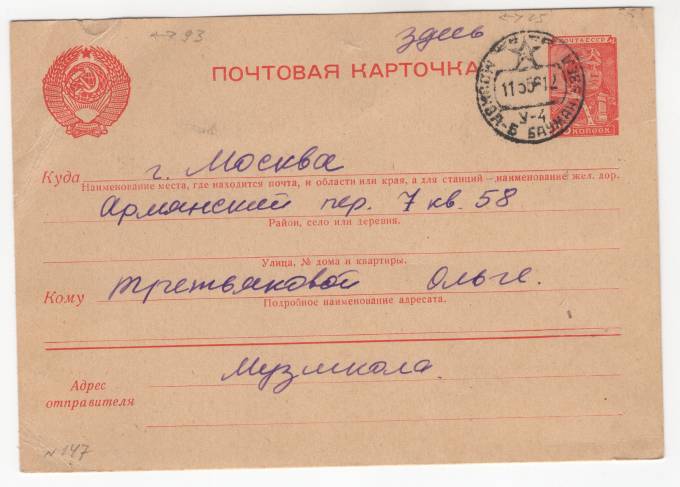 93
15
здесь
ПОЧТОВАЯ КАРТОЧКА
ПОЧТА СССР
КОПЕЕК
МОСКВА
11 5 56 12
У-4
БАУМАН
Куда г. Москва
Наименование места, где находится почта, и области или края, а для станций — наименование жел. дор.
Армянский пер. 7 кв. 58
Район, село или деревня.
Улица, № дома и квартиры.
Кому Третьяковой Ольге.
Подробное наименование адресата.
Музшкола.
Адрес
отправителя
N 147